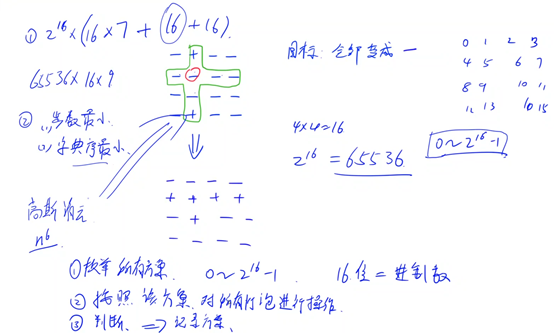 ① 2^16 × (16 × 7 + 16 + 16).
65536 × 16 × 9
② (1) 步数最小.
(2) 字典序最小.
高斯消元
n^6
- + - -
- - - -
- - - -
- + - -
- - - -
+ + + +
- + - -
- - - -
目标: 全部变成 -
0 1 2 3
4 5 6 7
8 9 10 11
12 13 14 15
4×4=16
2^16 = 65536
0~2^16-1
① 枚举所有方案. 0~2^16-1 16位二进制数
② 按照该方案, 对所有灯泡进行操作.
③ 判断. ⇒ 记录方案.